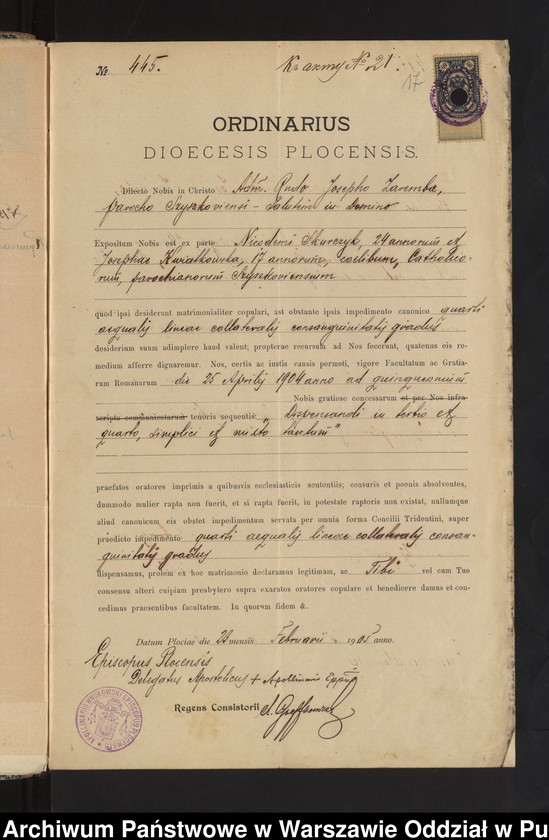 № 445.
Къ акту № 21.
17
ORDINARIUS
DIOECESIS PLOCENSIS.
Dilecto Nobis in Christo Adm. Rndo Josepho Zaremba,
parocho Szyszkoviensi - Salutem in Domino
Expositum Nobis est ex parte Nicodemi Skurczyk, 24 annorum et
Josephae Kwiatkowska, 17 annorum, caelibum, Catholico-
rum, parochianorum Szyszkoviensium
quod ipsi desiderant matrimonialiter copulari, ast obstante ipsis impedimento canonico quarti
aequalis lineae collateralis consanguinitatis gradus
desiderium suum adimplere haud valent; propterea recursum ad Nos fecerunt, quatenus eis re-
medium afferre dignaremur. Nos, certis ac iustis causis permoti, vigore Facultatum ac Gratia-
rum Romanarum die 25 Aprilis 1904 anno ad quinquennium
Nobis gratiose concessarum et per Nos infra-
scripto communicatarum tenoris sequentis: „Dispensandi in tertio et
quarto, simplici et mixto tantum"
praefatos oratores imprimis a quibusvis ecclesiasticis sententiis; censuris et poenis absolventes,
dummodo mulier rapta non fuerit, et si rapta fuerit, in potestate raptoris non existat, nullumque
aliud canonicum eis obstet impedimentum servata per omnia forma Concilii Tridentini, super
praedicto impedimento quarti aequalis lineae collateralis consan-
guinitatis gradus
dispensamus, prolem ex hoc matrimonio declaramus legitimam, ac Tibi vel cum Tuo
consensu alteri cuipiam presbytero supra exaratos oratores copulare et benedicere damus et con-
cedimus praesentibus facultatem. In quorum fidem &.
Datum Plociae die 23 mensis Februarii 1905 anno.
Episcopus Plocensis
Delegatus Apostolicus + Apollinaris Eppus
Regens Consistorii
Archiwum Państwowe w Warszawie Oddział w Pu